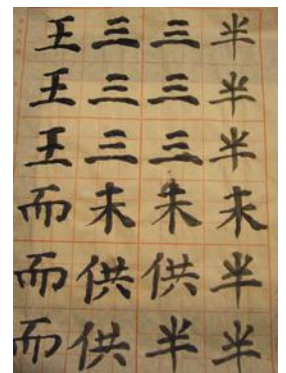 王三三半
王三三半
王三三半
而未未未
而供供半
而供半半